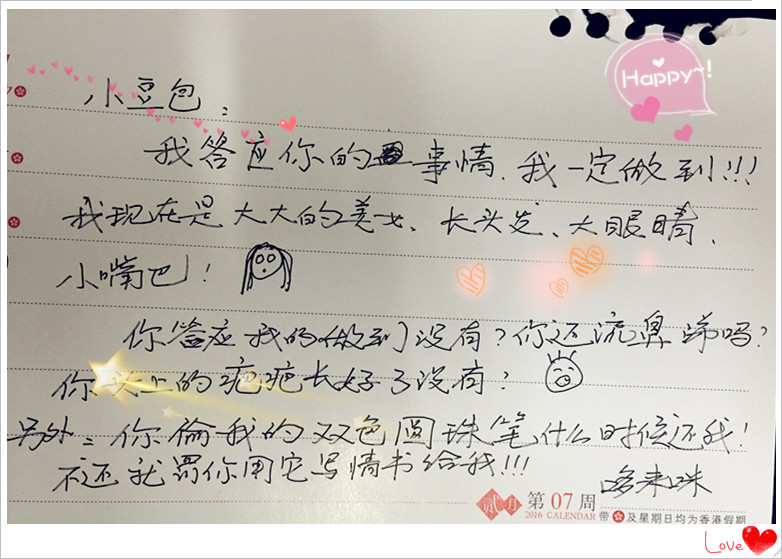 Happy~!
小豆包：
我答应你的事情、我一定做到!!!
我现在是大大的美女、长头发、大眼睛、
小嘴巴！
你答应我的做到了没有？你还流鼻涕吗？
你头上的疤疤长好了没有？
另外：你偷我的双色圆珠笔什么时候还我！
不还就罚你用它写情书给我!!!
哆来咪
贰月 第07周
2016 CALENDAR 带 及星期日均为香港假期
Love